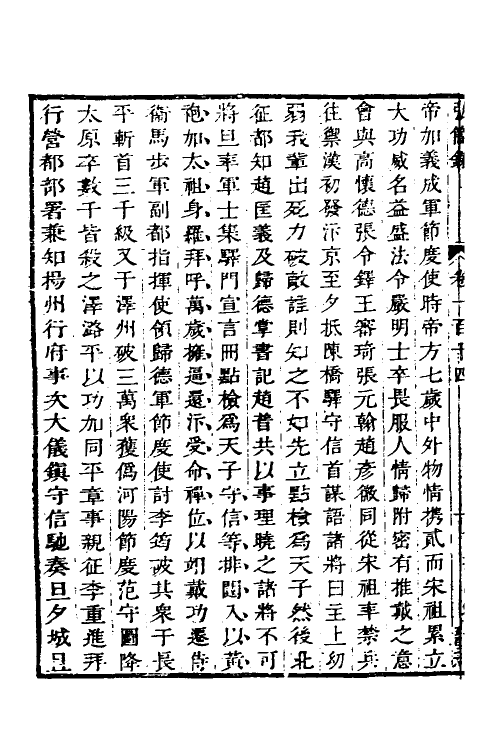 帝加義成軍節度使時帝方七歲中外物情携貳而宋祖累立
大功威名益盛法令嚴明士卒畏服人情歸附密有推戴之意
會與高懷德張令鐸王審琦張元翰趙彥徽同從宋祖率禁兵
往禦漢初發汴京至夕抵陳橋驛守信首謀語諸將曰主上幼
弱我輩出死力破敵誰則知之不如先立點檢爲天子然後北
征都知趙匡義及歸德掌書記趙普共以事理曉之諸將不可
將旦率軍士集驛門宣言冊點檢爲天子守信等排闥入以黃
袍加太祖身羅拜呼萬歲擁逼還汴受命禪位以翊戴功遷侍
衛馬步軍副都指揮使領歸德軍節度使討李筠破其衆于長
平斬首三千級又于澤州破三萬衆獲僞河陽節度范守圖降
太原卒數千皆殺之澤潞平以功加同平章事親征李重進拜
行營都部署兼知揚州行府事次大儀鎮守信馳奏旦夕城且